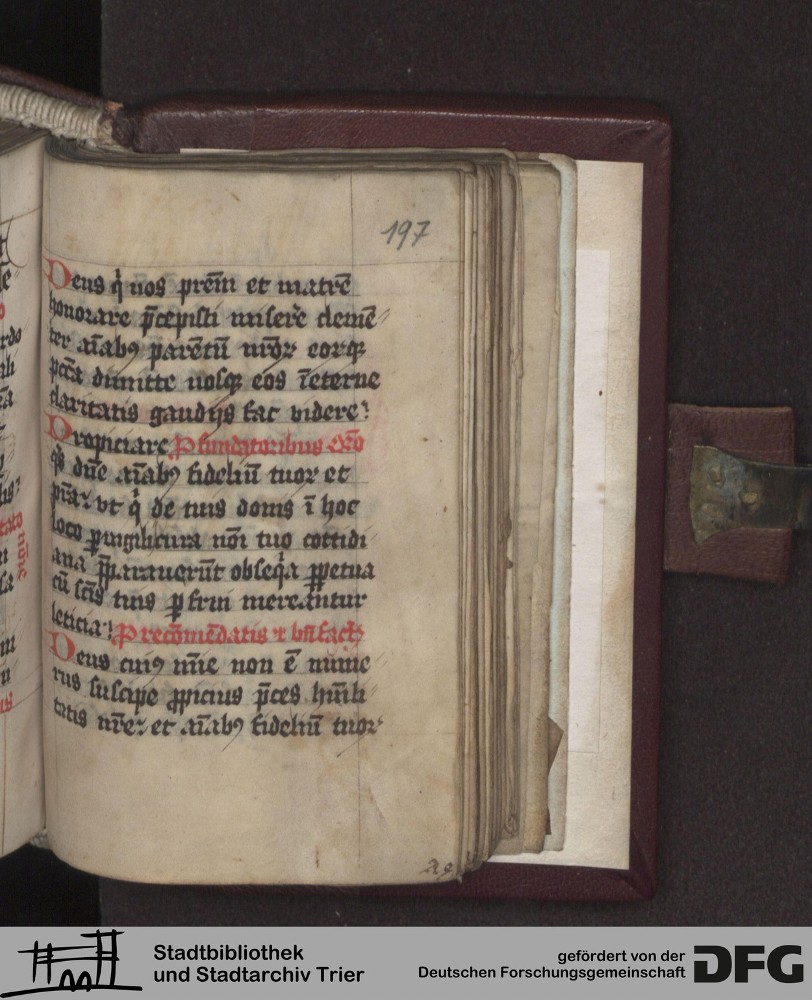 197
Deus q̇ nos p̄rem̄ et matrē
honorare p̄cepisti miserē clemē
ter aīabꝫ parētū nr̄oꝝ eorꝙ
pctā dimitte nosqꝫ eos īeterne
claritatis gaudijs fac videre
Propiciare ꝓ fundatoribus
qs̄ dn̄e aīabꝫ fideliū tuoꝝ et
vt q̇ de tuis donis ī hoc
loco noī tuo cottidi
ana p̄parauerūt obseq̇a ꝑpetua
cū scīs tuis ꝑfrui mereantur
leticia ꝓ recōmēdatis ⁊
Deus cuiꝰ mīe non ē nume
rus suscipe ꝓpicius p̄ces hūili
tatis nr̄e et aīabꝫ fideliū tuoꝝ
Stadtbibliothek
und Stadtarchiv Trier
gefördert von der
Deutschen Forschungsgemeinschaft
DFG